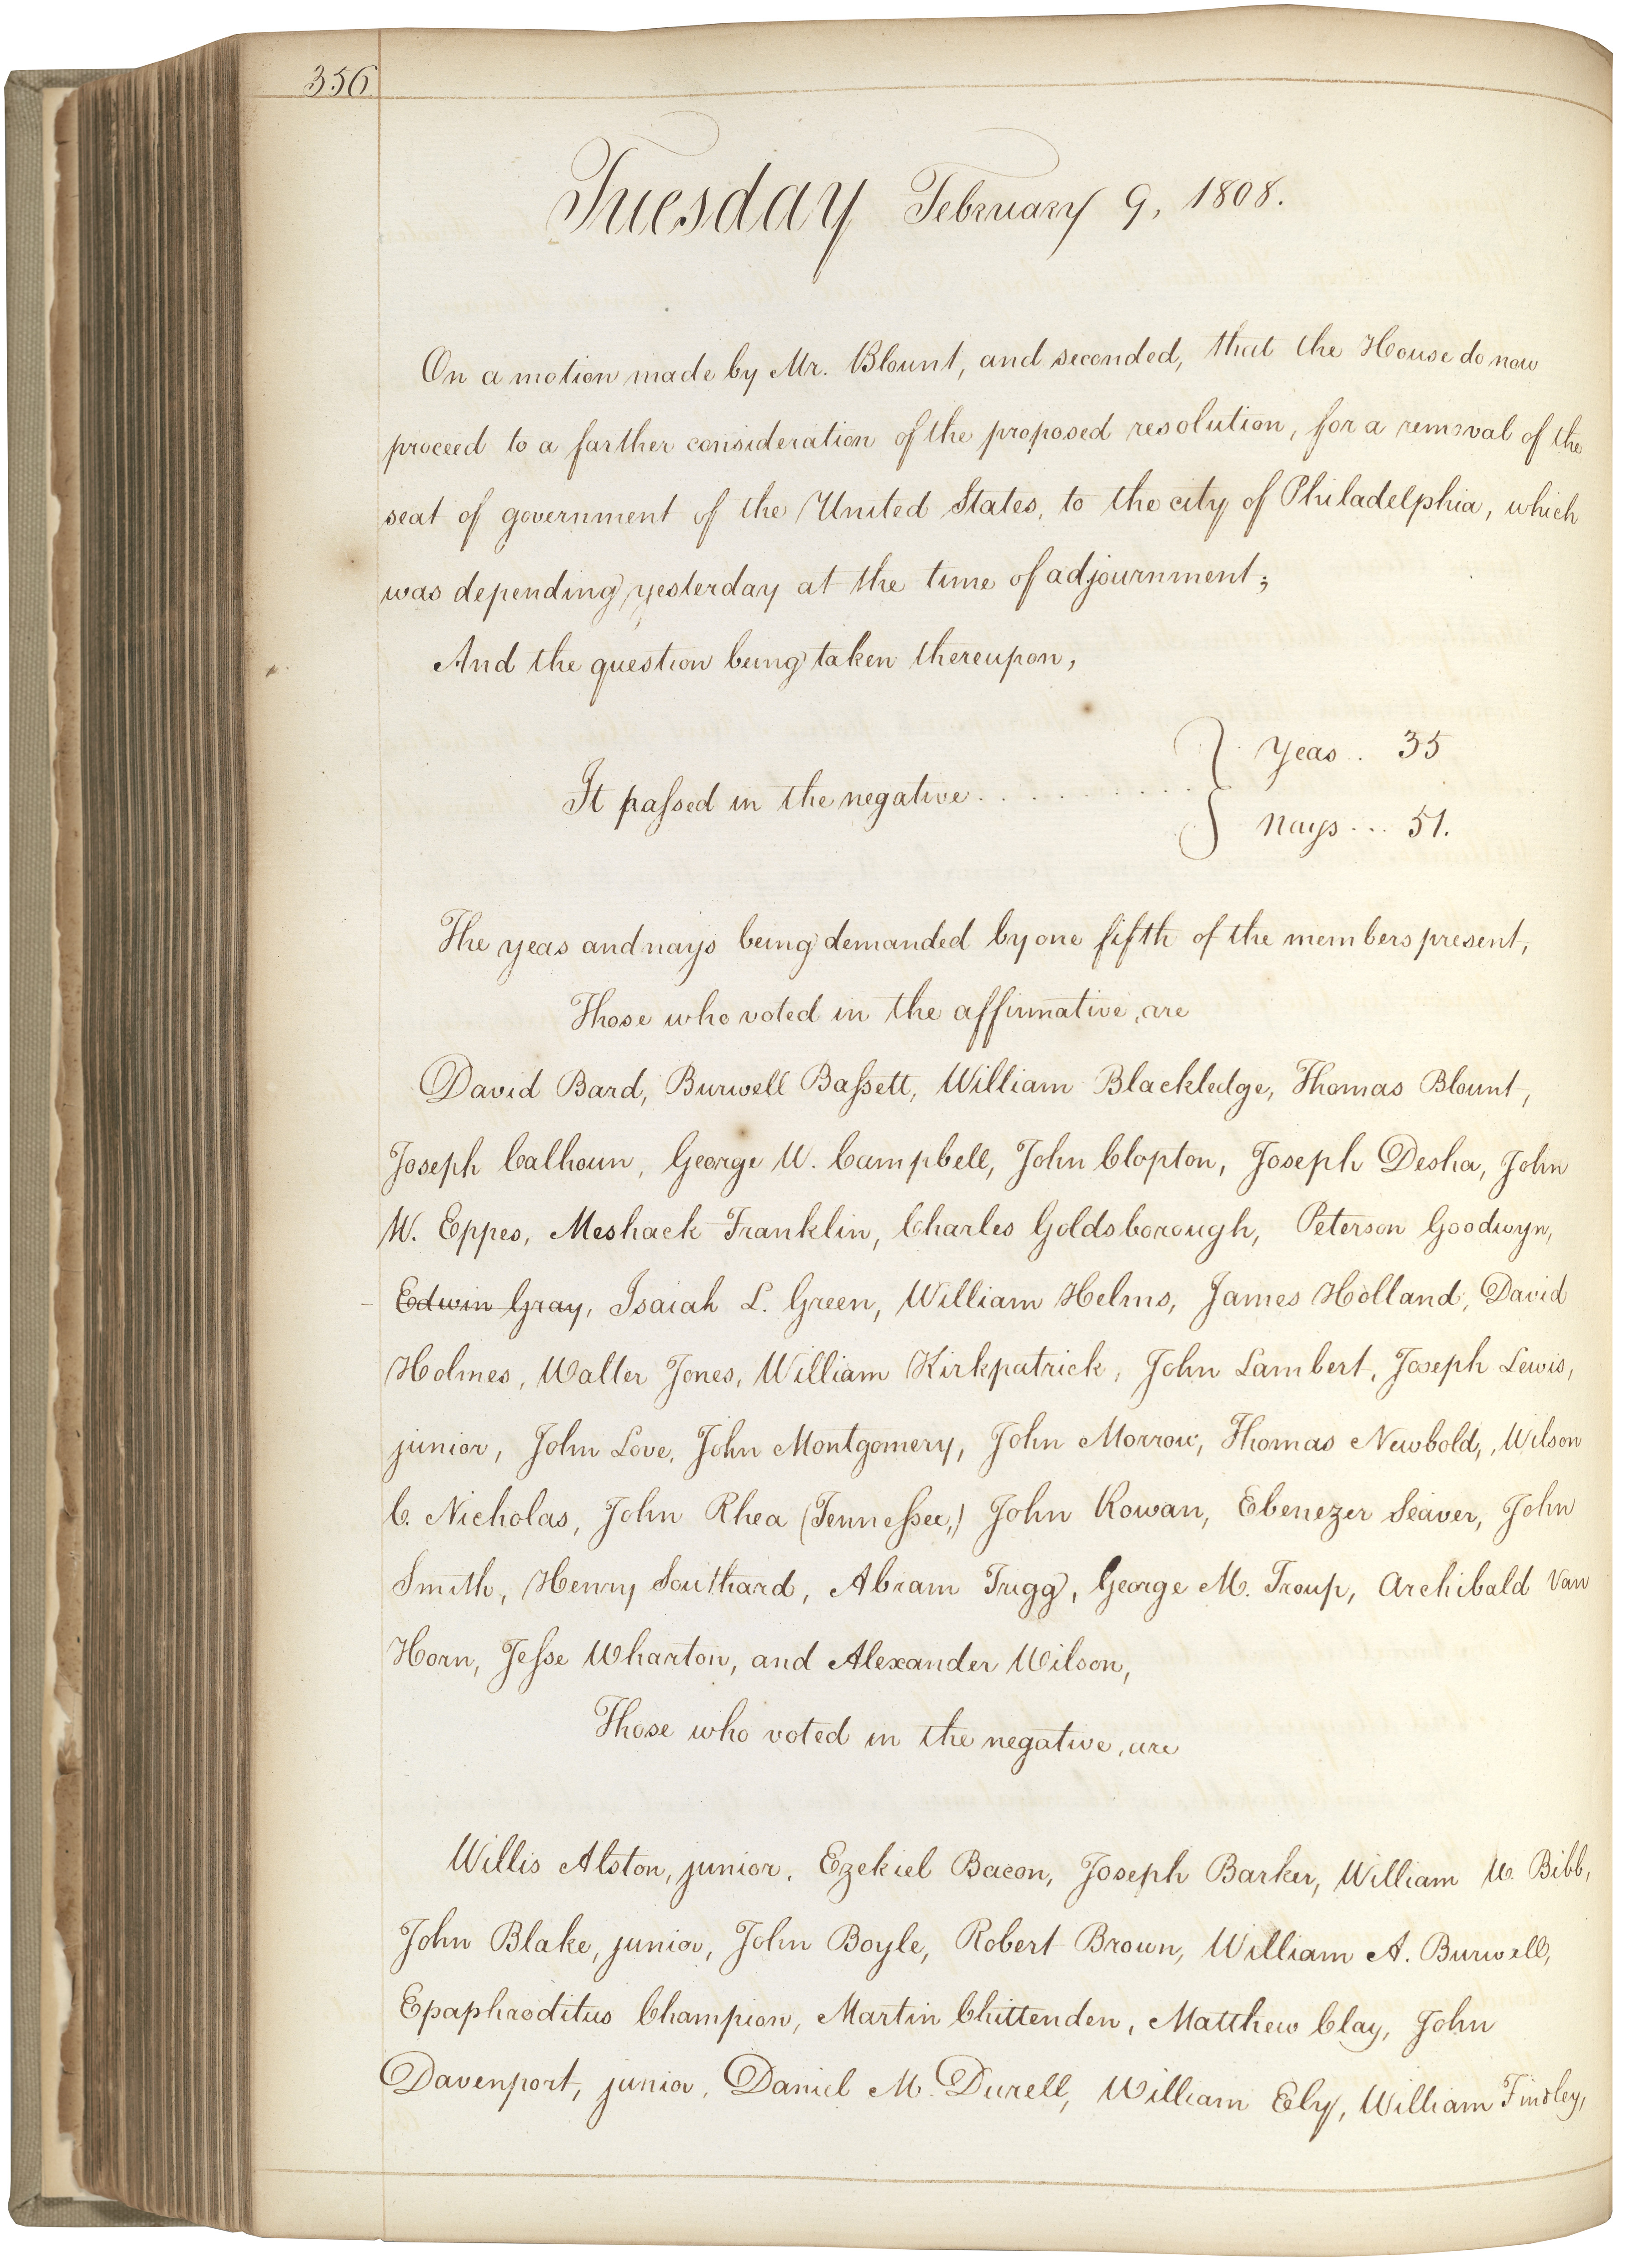 356
Tuesday February 9, 1808.
On a motion made by Mr. Blount, and seconded, that the House do now
proceed to a farther consideration of the proposed resolution, for a removal of the
seat of government of the United States, to the city of Philadelphia, which
was depending yesterday at the time of adjournment;
And the question being taken thereupon,
It passed in the negative . . . . . . . . . . } Yeas . . 35
Nays . . . 51.
The yeas and nays being demanded by one fifth of the members present,
Those who voted in the affirmative, are
David Bard, Burwell Bassett, William Blackledge, Thomas Blount,
Joseph Calhoun, George W. Campbell, John Clopton, Joseph Desha, John
W. Eppes, Meshack Franklin, Charles Goldsborough, Peterson Goodwyn,
Edwin Gray, Isaiah L. Green, William Helms, James Holland, David
Holmes, Walter Jones, William Kirkpatrick, John Lambert, Joseph Lewis,
junior, John Love, John Montgomery, John Morrow, Thomas Newbold, Wilson
C. Nicholas, John Rhea (Tennessee,) John Rowan, Ebenezer Seaver, John
Smith, Henry Southard, Abram Trigg, George M. Troup, Archibald Van
Horn, Jesse Wharton, and Alexander Wilson,
Those who voted in the negative, are
Willis Alston, junior, Ezekiel Bacon, Joseph Barker, William W. Bibb,
John Blake, junior, John Boyle, Robert Brown, William A. Burwell,
Epaphroditus Champion, Martin Chittenden, Matthew Clay, John
Davenport, junior, Daniel M. Durell, William Ely, William Findley,